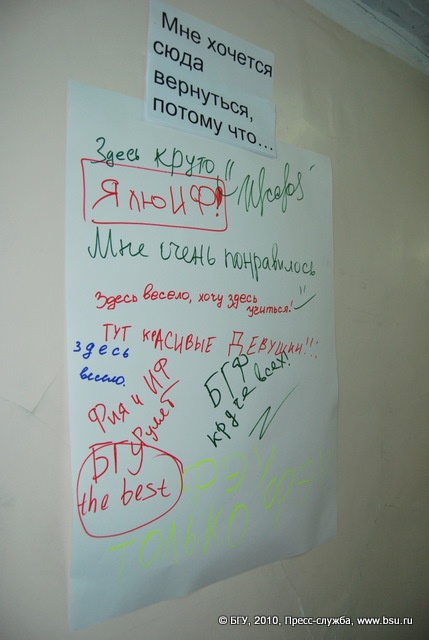 Мне хочется
сюда
вернуться,
потому что...
Здесь круто
Я лю ИФ!
Мне очень понравилось
Здесь весело, хочу здесь
учиться!
ТУТ КРАСИВЫЕ ДЕВУШКИ!!!
здесь
весело.
Фия и ИФ
рулят
БГФ
круче всех!
БГУ
the best
ФЭУ
ТОЛЬКО ФЭУ
© БГУ, 2010, Пресс-служба, www.bsu.ru